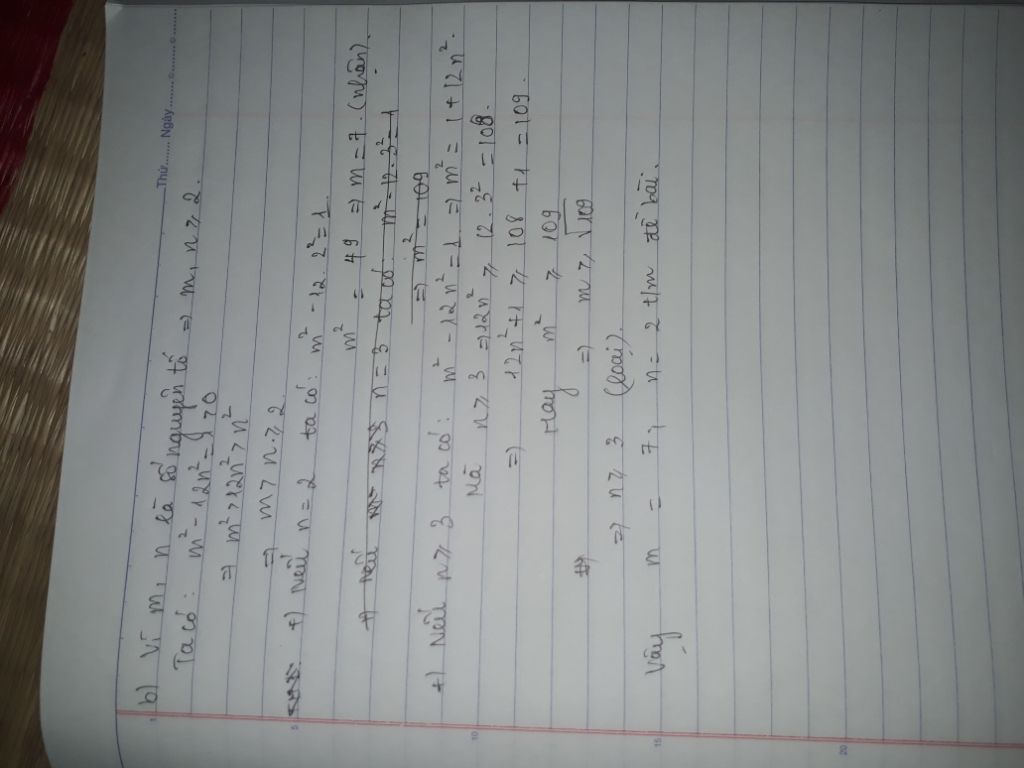 Thứ....... Ngày...............
b) Vì m, n là số nguyên tố => m, n ≥ 2.
Ta có: m² - 12n² = 1 > 0
=> m² > 12n² > n²
=> m > n ≥ 2.
+) Nếu n = 2 ta có: m² - 12. 2² = 1
m² = 49 => m = 7. (nhận).
+) Nếu n = 3 ta có m² - 12. 3² = 1
=> m² = 109
+) Nếu n ≥ 3 ta có: m² - 12n² = 1. => m² = 1 + 12n².
Mà n ≥ 3 => 12n² ≥ 12. 3² = 108.
=> 12n² + 1 ≥ 108 + 1 = 109.
Hay m² ≥ 109
=> m ≥ √109
=> n ≥ 3 (loại).
Vậy m = 7, n = 2 t/m đề bài.
5
10
15
20